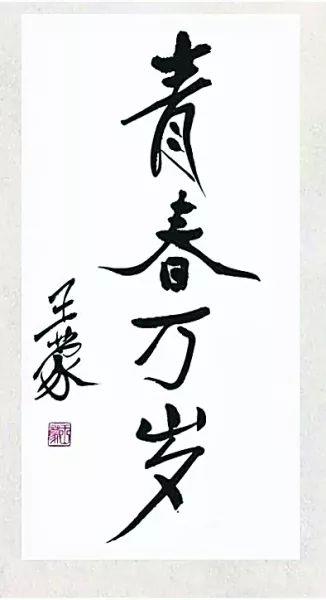 青春万岁
王蒙